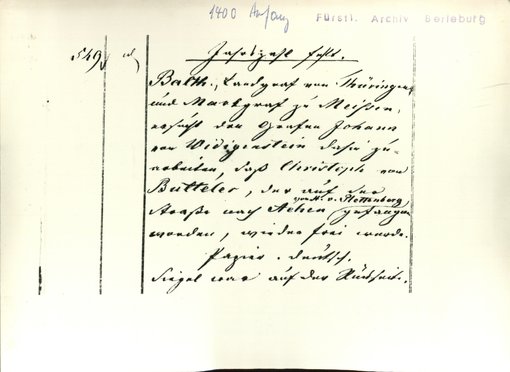 1400 Anfang
Fürstl. Archiv Berleburg
549
Jahrzahl fehlt.
Balth., Landgraf von Thüringen
und Markgraf zu Meißen,
ersucht den Grafen Johann
von Widigenstein dahin zu-
arbeiten, daß Christoph von
Butteler, der auf der
von H. v. Plettenberg,
Straße nach Achen gefangen
worden, wieder frei werde.
Papier. deutsch.
Siegel war auf der Rückseite.